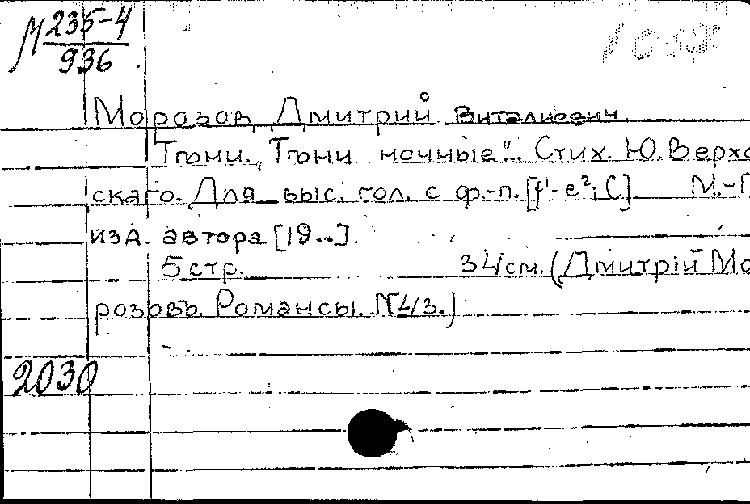 М 235-4
936
Морозов, Дмитрий Виталиевич
Тони. „Тони ночные". Стих. Ю. Верхо
скаго. Для выс. гол. с ф.-п. [f¹-e²; C] М.-
изд. автора [19..].
5 стр. 34 см. (Дмитрій Мо
розовъ. Романсы. №4/3.)
2030